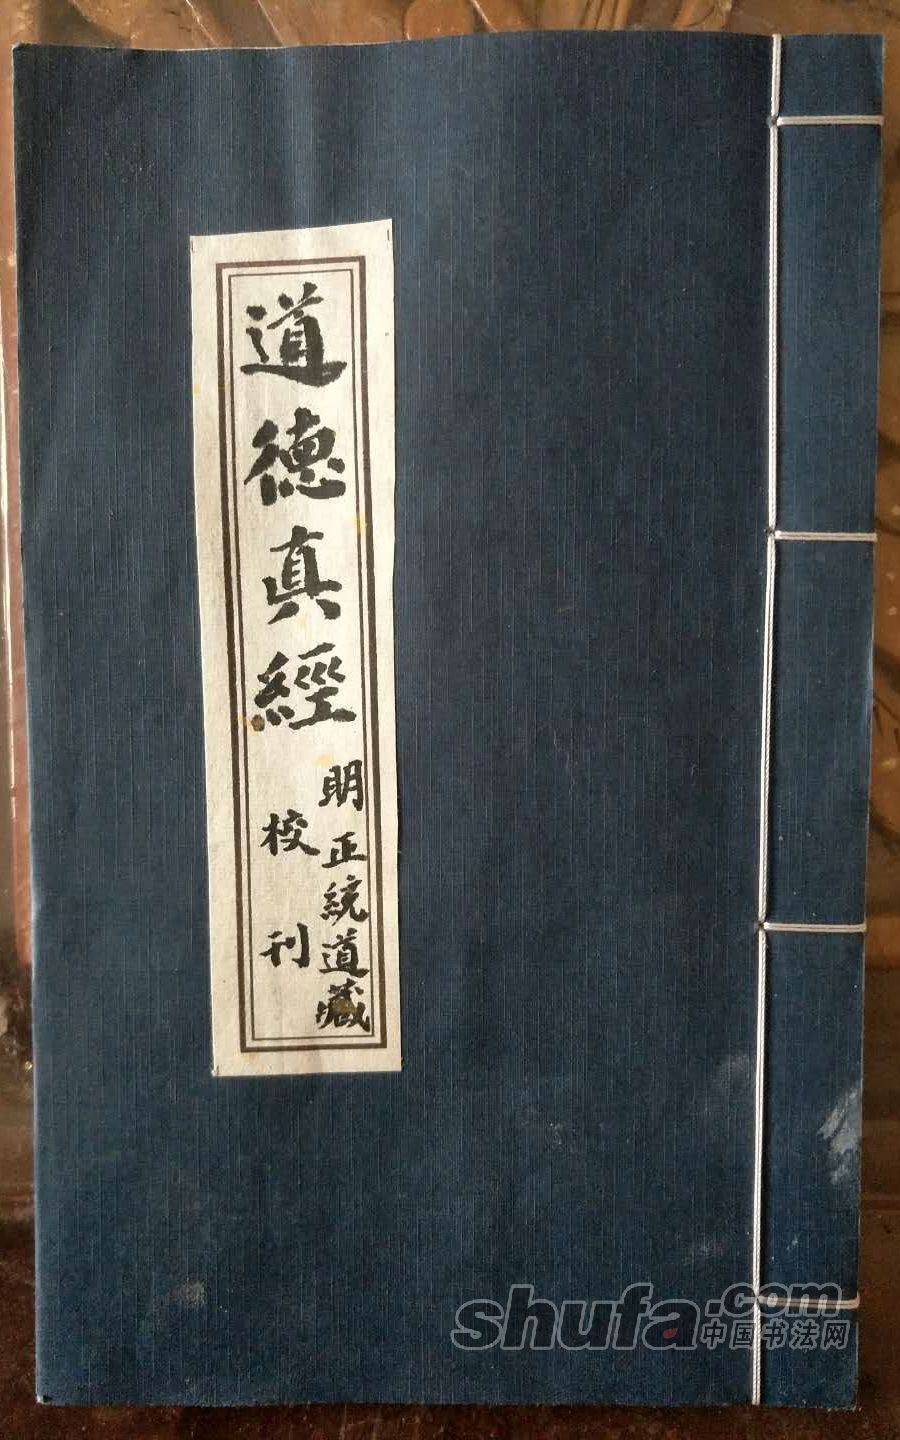 道德真經
明正統道藏
校刊
shufa.com
中国书法网